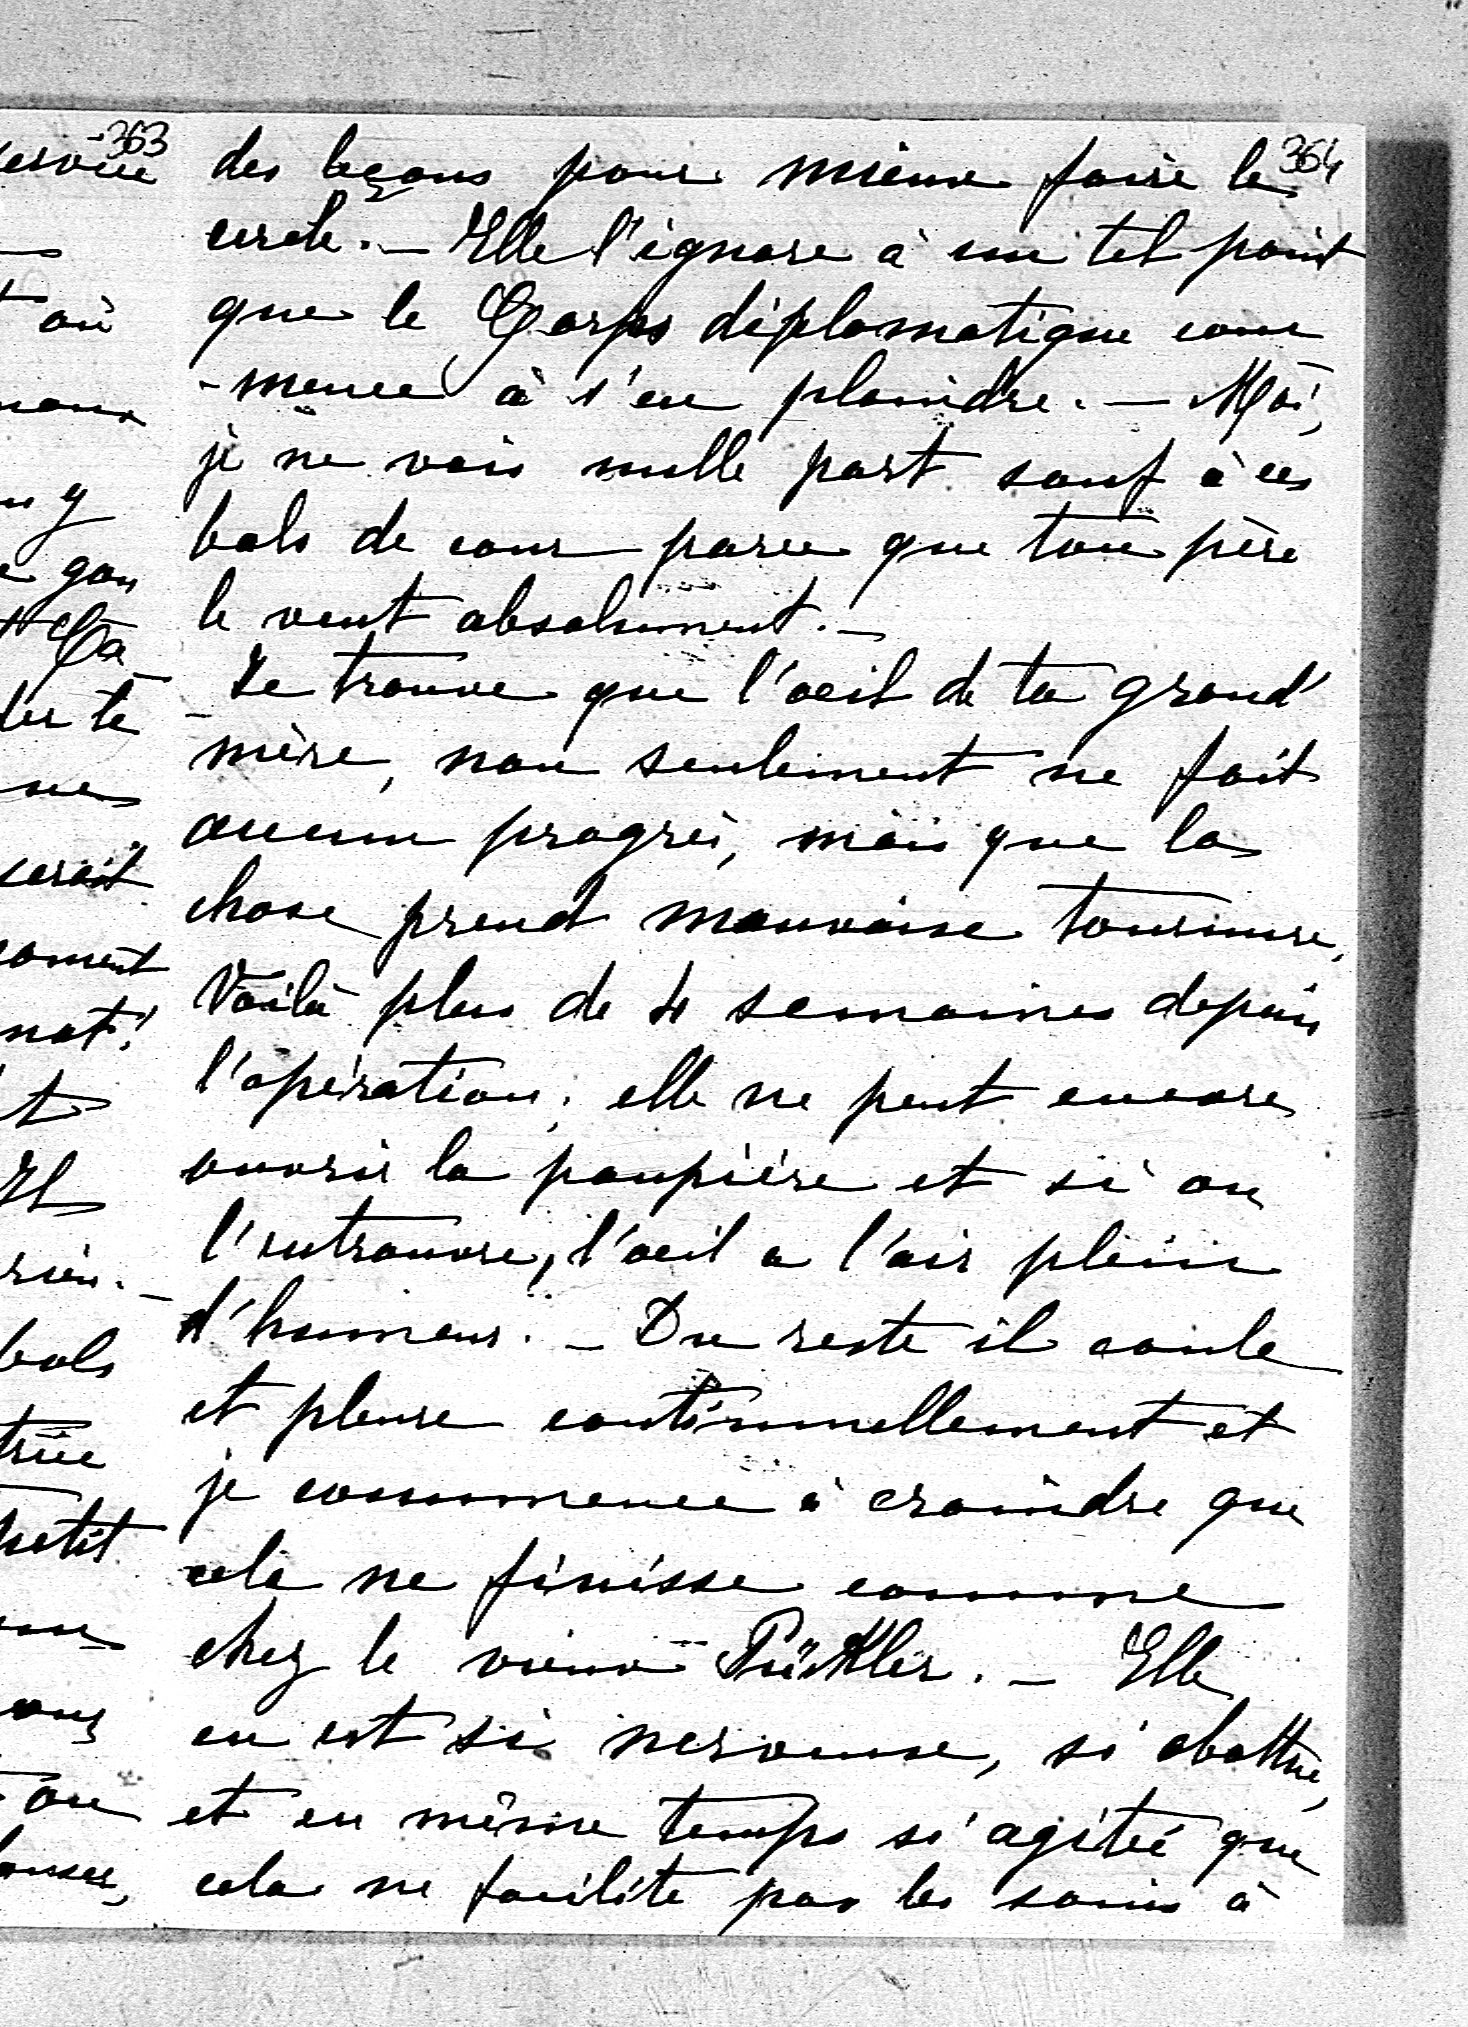 363
364
des leçons pour mieux faire le
cercle. — Elle l'ignore à un tel point
que le Corps diplomatique com
-mence à s'en plaindre. — Moi,
je ne vais nulle part sauf à ces
bals de cour parce que ton père
le veut absolument. —
Je trouve que l'oeil de ta grand'
mère, non seulement ne fait
aucun progrès, mais que la
chose prend mauvaise tournure.
Voilà plus de 4 semaines depuis
l'opération; elle ne peut encore
ouvrir la paupière et si on
l'entrouvre, l'oeil a l'air plein
d'humeur. — Du reste il coule
et pleure continuellement et
je commence à craindre que
cela ne finisse comme
chez le vieux Pückler. — Elle
en est si nerveuse, si abattue,
et en même temps si agitée que
cela ne facilite pas les soins à